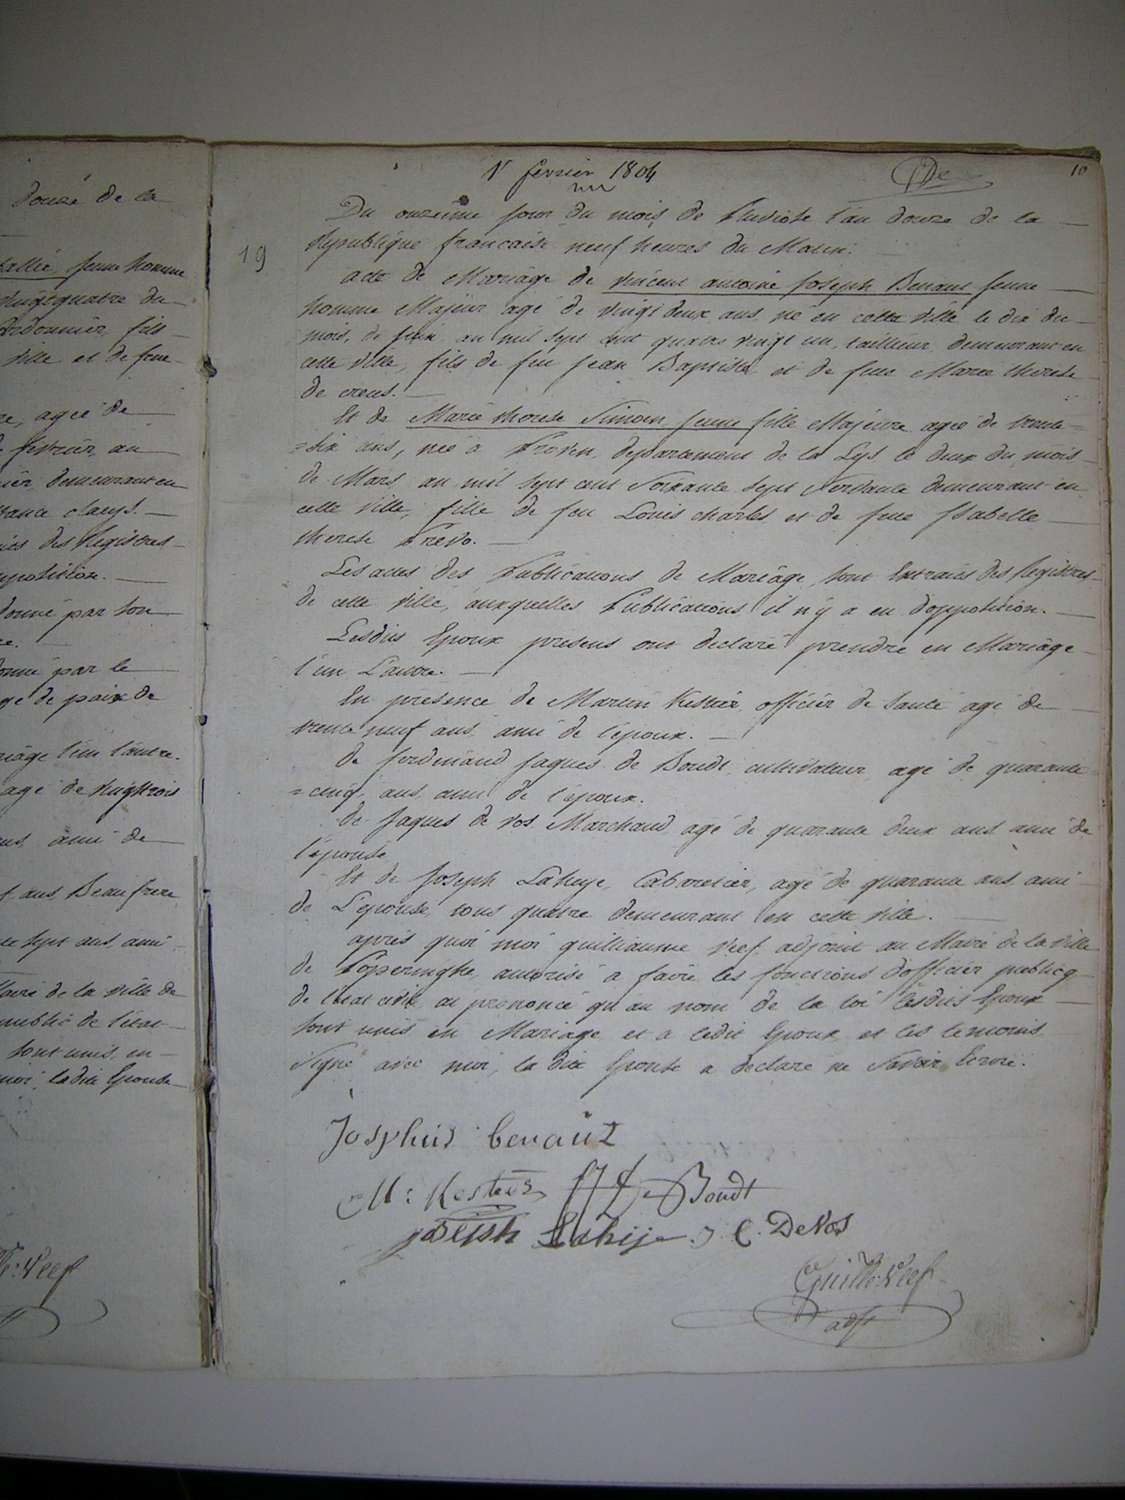 douze de la
jeune homme
vingt quatre du
cordonnier, fils
ville et de feue
agée de
fevrier, au
demeurant en
claeys.
des Registres
opposition.
donné par son
donné par le
de paix de
mariage l'un l'autre.
agé de vingttrois
ans ami de
ans, Beau frere
sept ans, ami
Maire de la ville de
public de l'etat
sont unis, en
moi, ladite Epouse
Vleef
1 fevrier 1804
10
19
Du onzeime jour du mois de Pluviose l'an douze de la
Republique francaise neuf heures du Matin.
acte de Mariage de vincent antoine Joseph Benaut jeune
homme Majeur agé de vingt deux ans, né en cette ville le dix du
mois, de juin au mil sept cent quatre vingt un, tailleur, demeurant en
cette ville, fils de feu Jean Baptiste et de feue Marie therese
de creus.
Et de Marie therese Simoen jeune fille Majeure agée de trente
=six ans, née a Proven, departement de la Lys le deux du mois
de Mars au mil sept cent soixante sept servante demeurant en
cette ville, fille de feu Louis charles et de feue Isabelle
therese Prevo.
Les actes des Publications de Mariage, sont Extraies des Registres
de cette ville, auxquelles Publications il n'y a eu d'opposition.
Lesdits Epoux presens ont declaré prendre en Mariage
l'un L'autre.
En presence de Martin Kestier officier de santé agé de
trente neuf ans ami de l'époux.
de ferdinand Jaques de Boudt, cultivateur, agé de quarante
=cinq, ans, ami de l'époux.
de Jaques de vos Marchand agé de quarante deux ans ami de
l'épouse
Et de Joseph Lahuye, Cabaretier, agé de quarante ans, ami
de L'epouse, tous quatre demeurant en cette ville.
après quoi moi guilliaume Vleef adjoint au Maire de la ville
de Poperinghe, autorisé a faire les fonctions d'officier publicq
de l'etat civil ai prononcé qu'au nom de la loi lesdits Epoux
sont unis en Mariage et a ledit Epoux et les temoins
Signé avec moi, la dite Epouse a declaré ne Savoir Ecrire.
Josephus benaut
M: Kesteer F J De Boudt
Joseph Lahije J. C. De Vos
Guill: Vleef
adjt